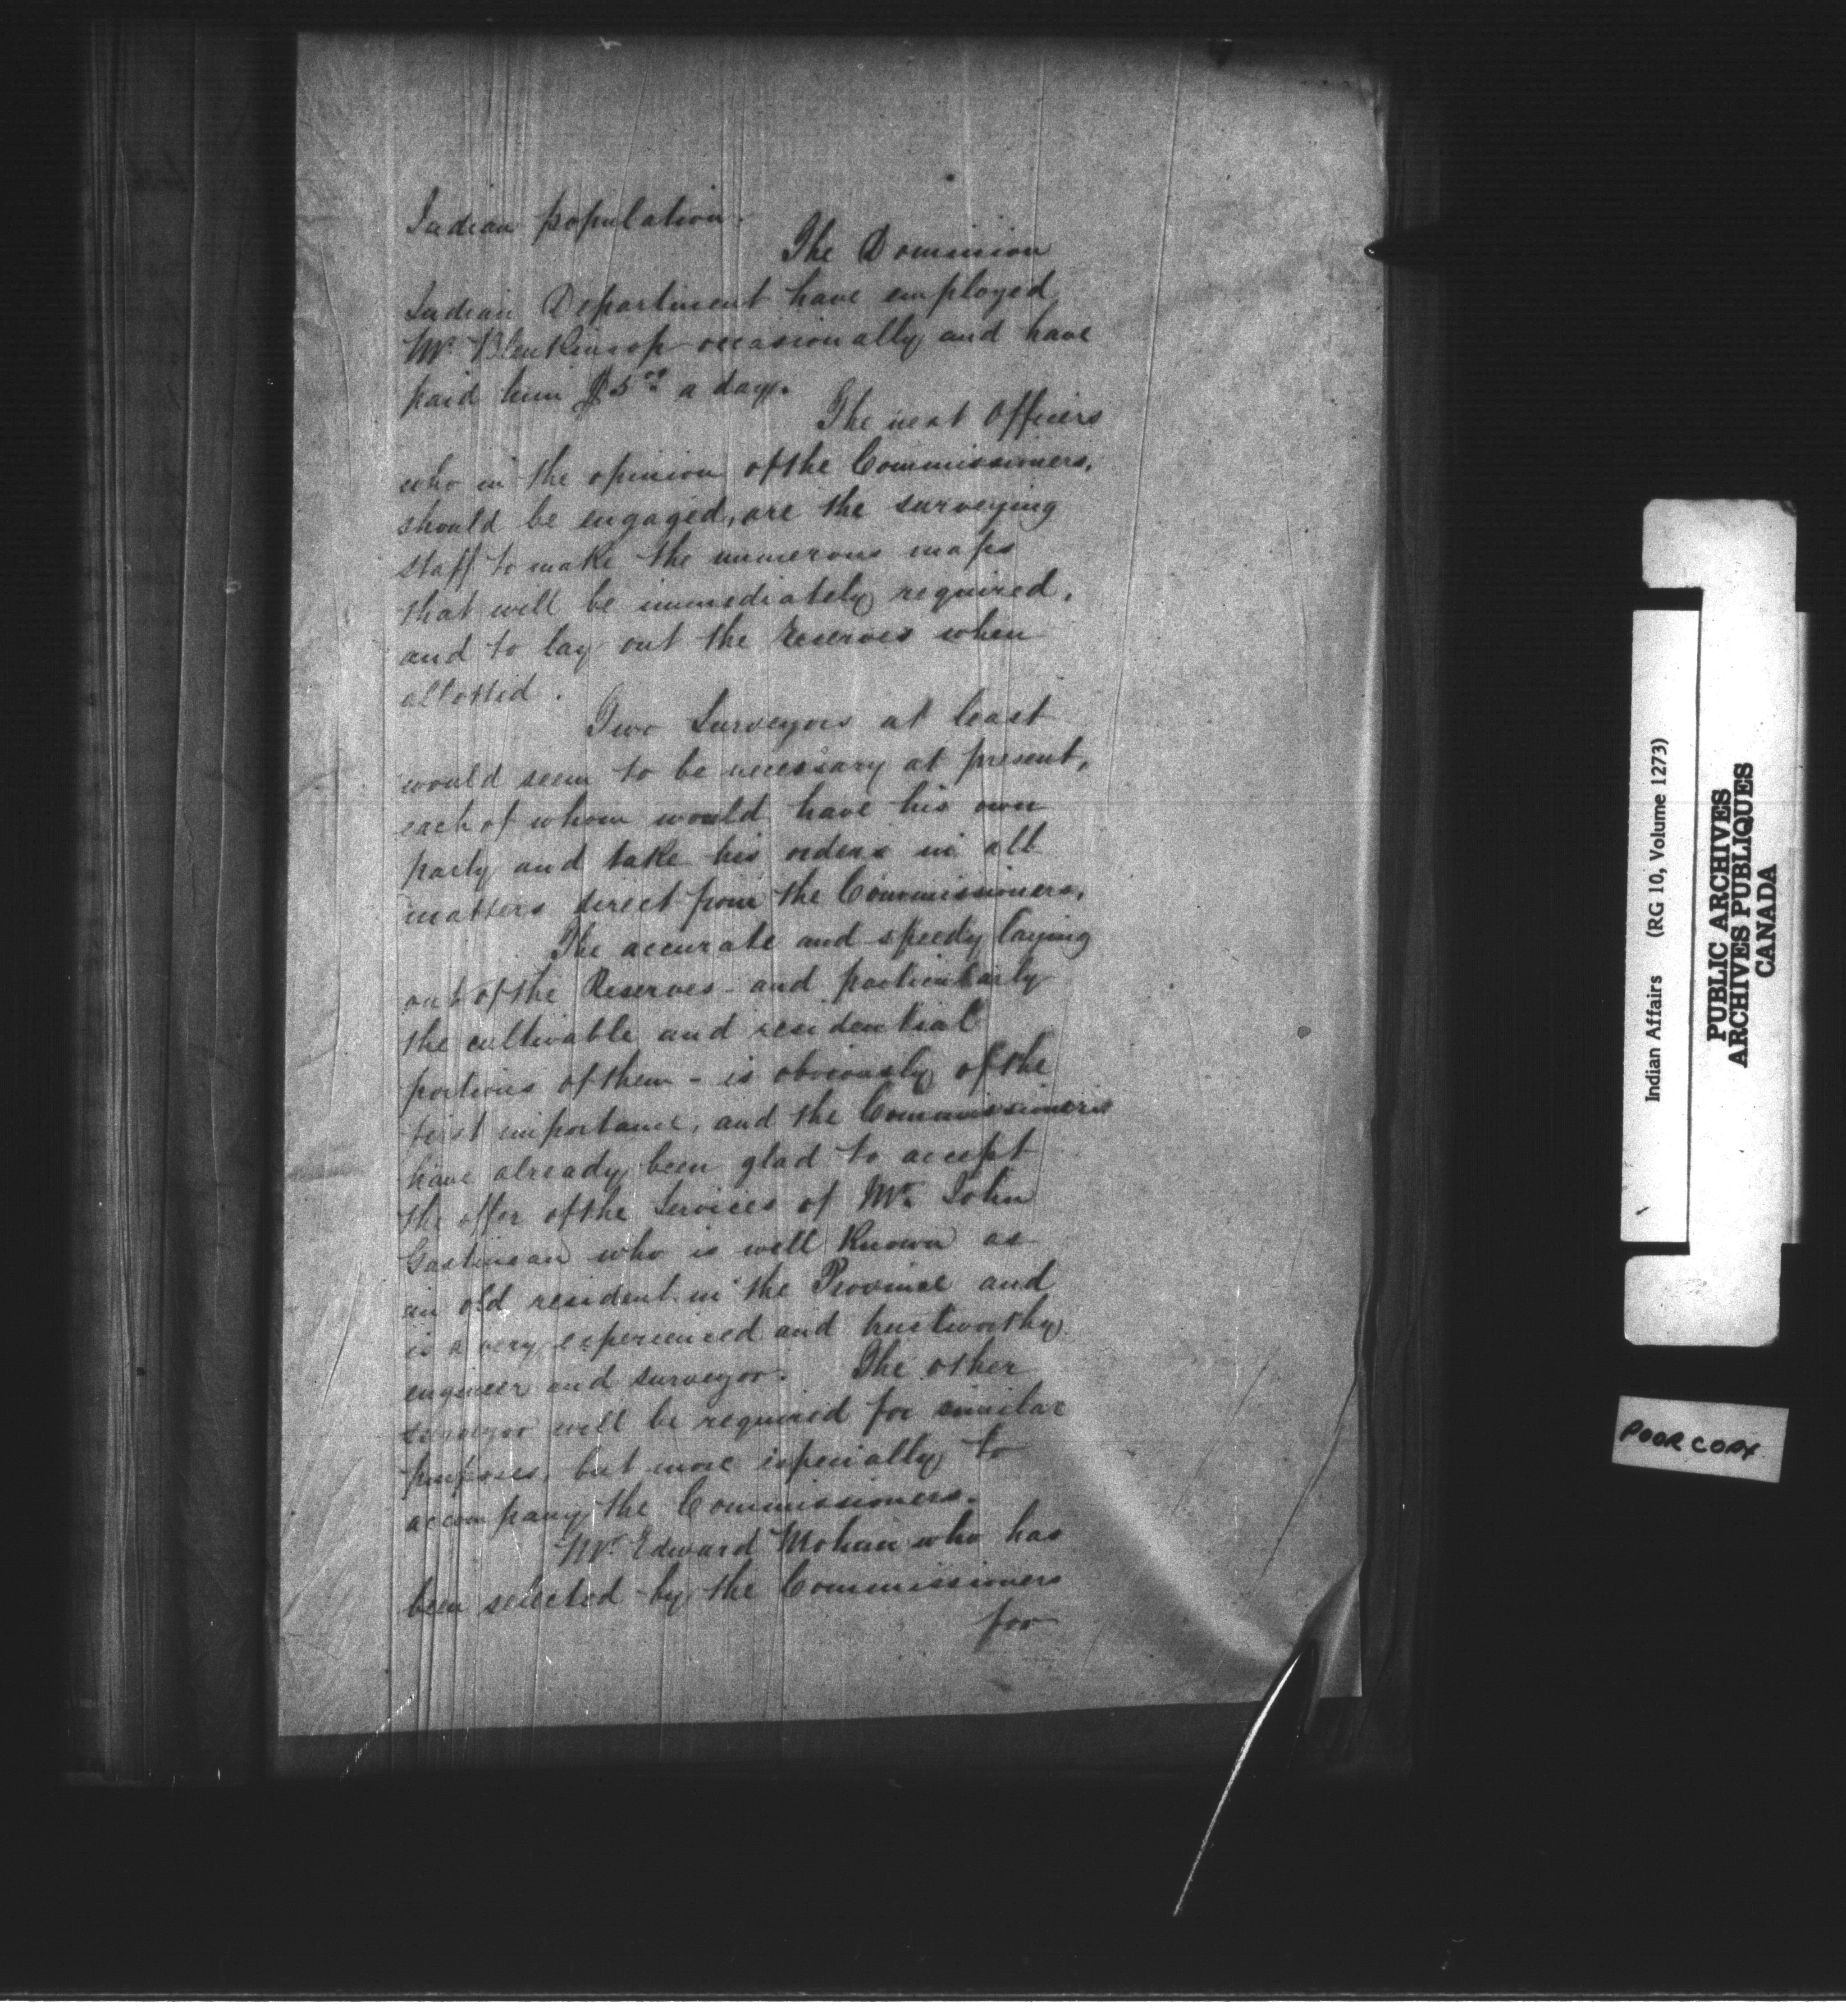 Indian population.
The Dominion
Indian Department have employed
Mr. Blenkinsop occasionally and have
paid him $5.00 a day.
The next Officers
who in the opinion of the Commissioners,
should be engaged, are the surveying
staff to make the numerous maps
that will be immediately required,
and to lay out the reserves when
allotted.
Two Surveyors at least
would seem to be necessary at present,
each of whom would have his own
party and take his orders in all
matters direct from the Commissioners.
The accurate and speedy laying
out of the Reserves - and particularly
the cultivable and residential
portions of them - is obviously of the
first importance, and the Commissioners
have already been glad to accept
the offer of the Services of Mr. John
Gastineau who is well known as
an old resident in the Province and
is a very experienced and trustworthy
engineer and surveyor. The other
surveyor will be required for similar
purposes, but more especially to
accompany the Commissioners.
Mr. Edward Mohun who has
been selected by the Commissioners
for
Indian Affairs (RG 10, Volume 1273)
PUBLIC ARCHIVES
ARCHIVES PUBLIQUES
CANADA
POOR COPY